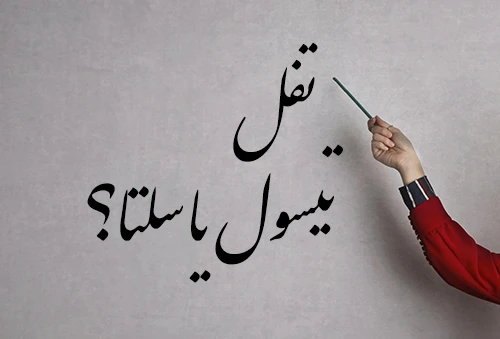 تفل
تیسول یا سلتا؟